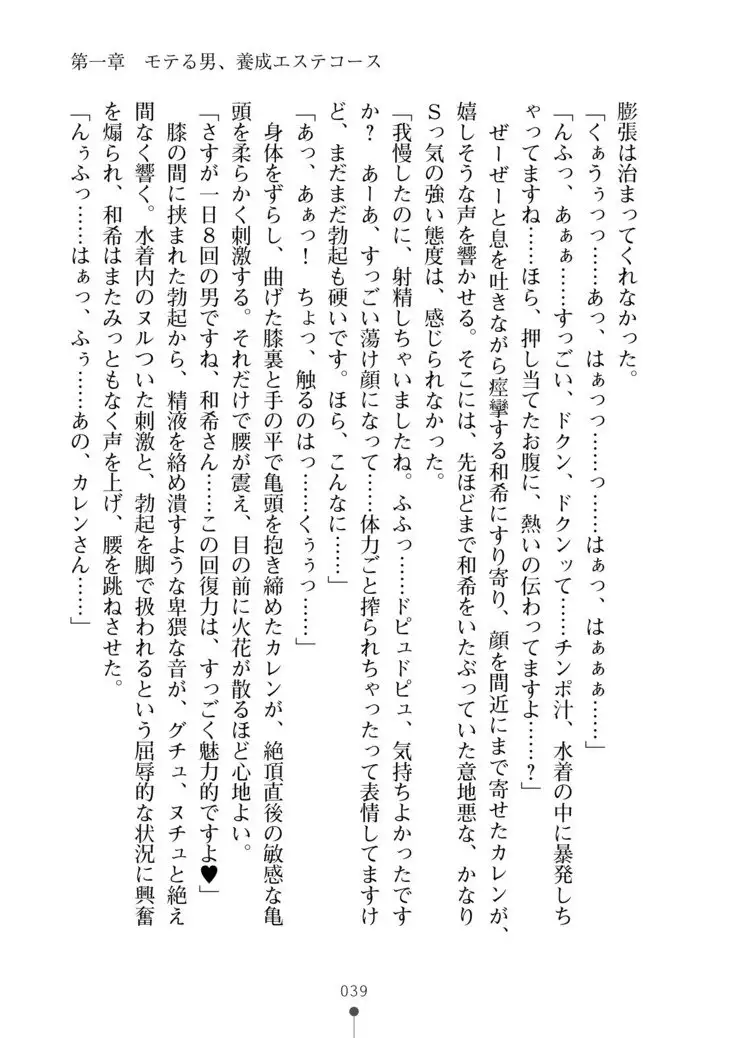 第一章　モテる男、養成エステコース
膨張は治まってくれなかった。
「くぁうぅっっ……あっ、はぁっっ……っ……はぁっ、はぁぁぁ……」
「んふっ、あぁぁ……すっごい、ドクン、ドクンッて……チンポ汁、水着の中に暴発しち
ゃってますね……ほら、押し当てたお腹に、熱いの伝わってますよ……？」
　ぜーぜーと息を吐きながら痙攣する和希にすり寄り、顔を間近にまで寄せたカレンが、
嬉しそうな声を響かせる。そこには、先ほどまで和希をいたぶっていた意地悪な、かなり
Ｓっ気の強い態度は、感じられなかった。
「我慢したのに、射精しちゃいましたね。ふふっ……ドピュドピュ、気持ちよかったです
か？　あーあ、すっごい蕩け顔になって……体力ごと搾られちゃったって表情してますけ
ど、まだまだ勃起も硬いです。ほら、こんなに……」
「あっ、あぁっ！　ちょっ、触るのはっ……くぅぅっ……」
　身体をずらし、曲げた膝裏と手の平で亀頭を抱き締めたカレンが、絶頂直後の敏感な亀
頭を柔らかく刺激する。それだけで腰が震え、目の前に火花が散るほど心地よい。
「さすが一日８回の男ですね、和希さん……この回復力は、すっごく魅力的ですよ♥」
　膝の間に挟まれた勃起から、精液を絡め潰すような卑猥な音が、グチュ、ヌチュと絶え
間なく響く。水着内のヌルついた刺激と、勃起を脚で扱われるという屈辱的な状況に興奮
を煽られ、和希はまたみっともなく声を上げ、腰を跳ねさせた。
「んぅふっ……はぁっ、ふぅ……あの、カレンさん……」
039